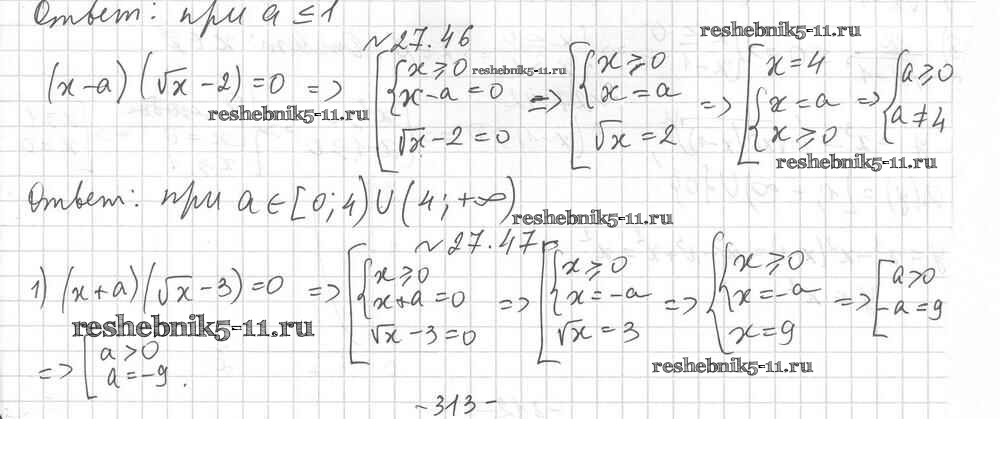 Ответ: при a ≤ 1
№27.46
reshebnik5-11.ru
(x-a)(√x-2)=0 => [{x≥0 x-a=0 √x-2=0 => [{x≥0 x=a √x=2 => [x=4 {x=a x≥0 => {a≥0 a≠4
reshebnik5-11.ru
reshebnik5-11.ru
reshebnik5-11.ru
Ответ: при a∈[0;4)∪(4;+∞)
reshebnik5-11.ru
№27.47
1) (x+a)(√x-3)=0 => [{x≥0 x+a=0 √x-3=0 => [{x≥0 x=-a √x=3 => {x≥0 x=-a x=9 => [a>0 -a=9
reshebnik5-11.ru
reshebnik5-11.ru
=> [a>0 a=-9.
-313-